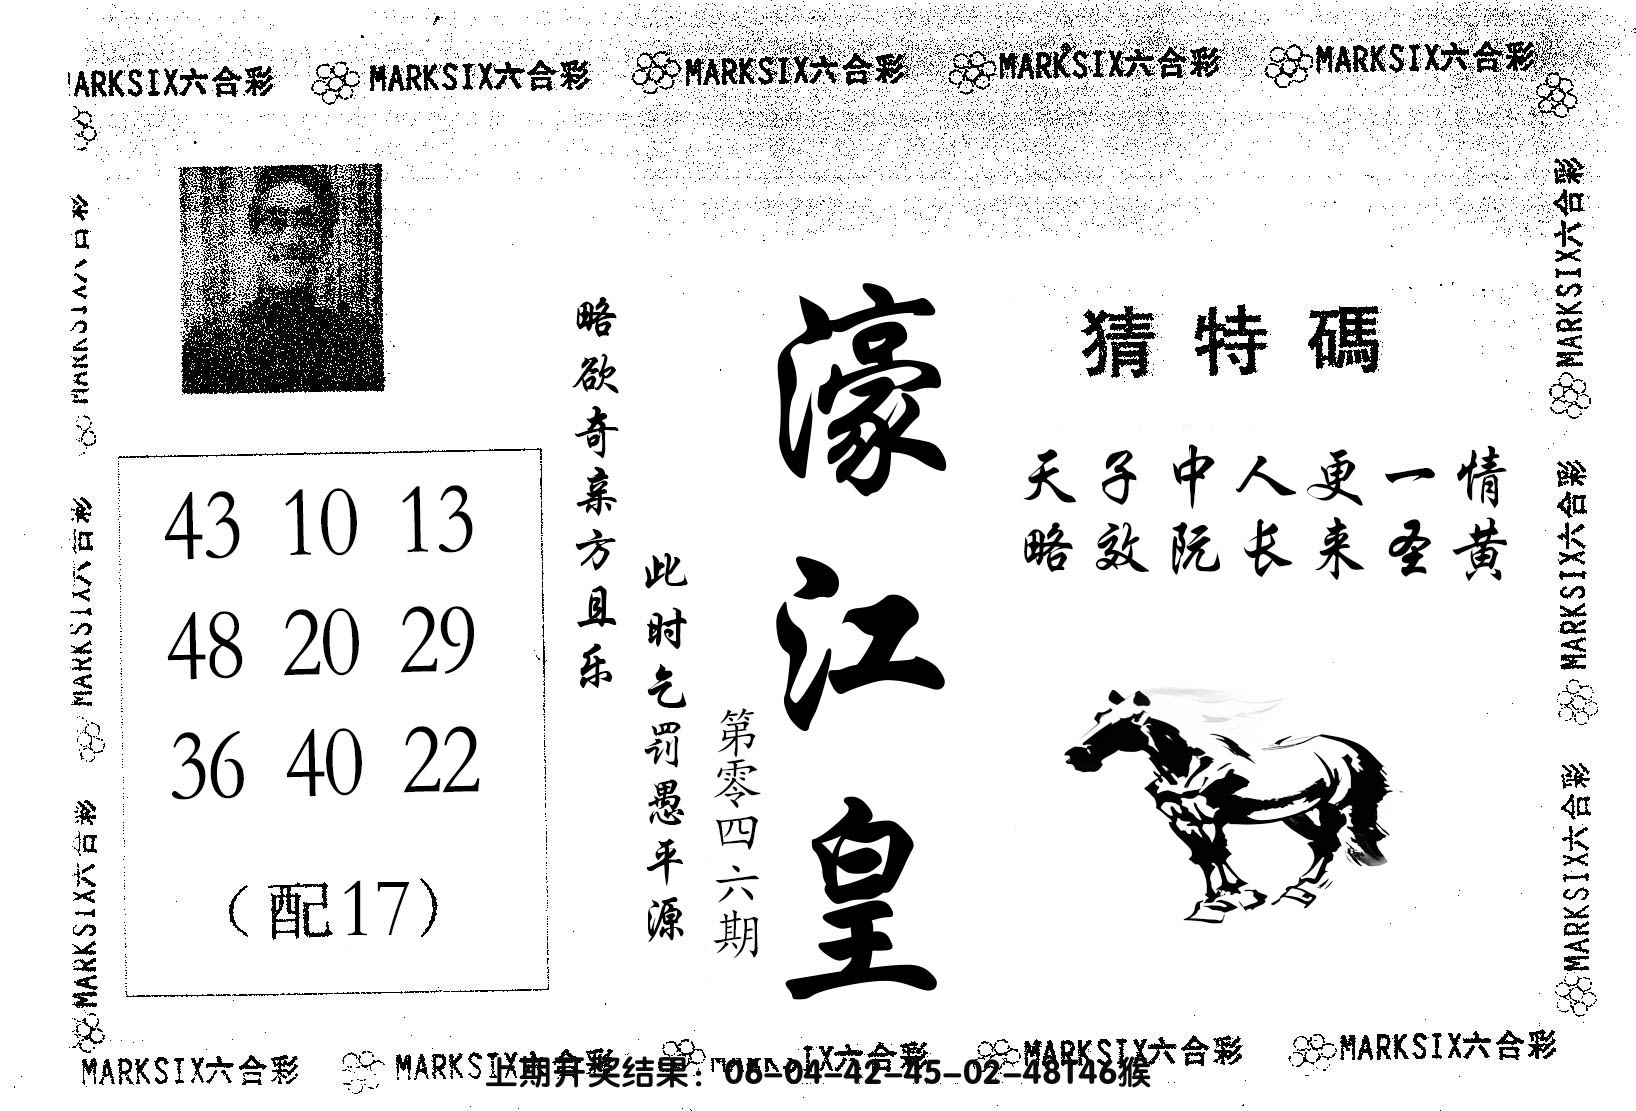 MARKSIX六合彩 MARKSIX六合彩 MARKSIX六合彩 MARKSIX六合彩 MARKSIX六合彩
MARKSIX六合彩
MARKSIX六合彩
MARKSIX六合彩
43 10 13
48 20 29
36 40 22
(配17)
略欲奇亲方且乐
此时乞罚愚平源
第零四六期
濠江皇
猜特碼
天子中人更一情
略效阮长来圣黄
MARKSIX六合彩
MARKSIX六合彩
MARKSIX六合彩
MARKSIX六合彩 MARKSIX六合彩 MARKSIX六合彩 MARKSIX六合彩 MARKSIX六合彩
上期开奖结果：06-04-42-45-02-48T46猴